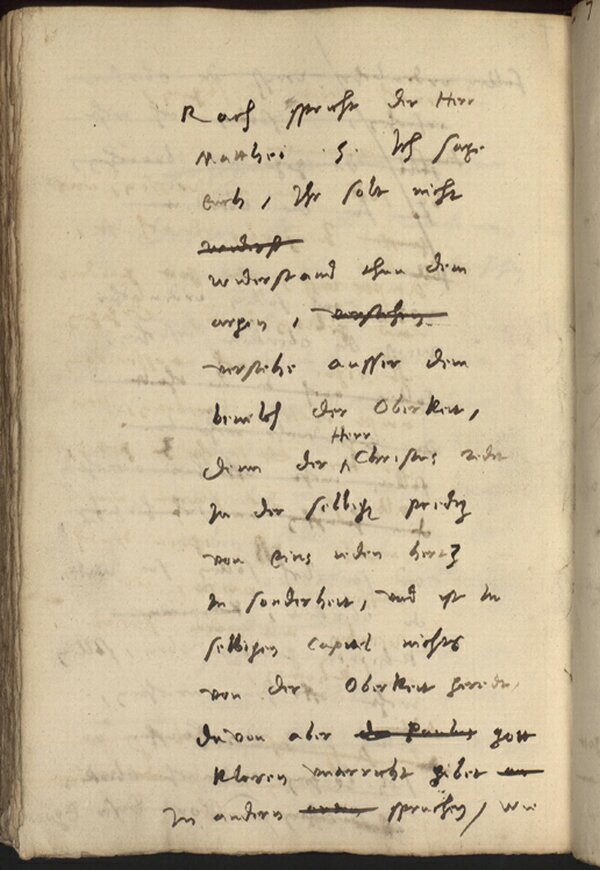 Rach spricht der Herr
Matthei 5. Ich sage
euch, Ihr solt nicht
widerstand thun dem
argen,
verstehe ausser dem
beuelh der Oberkeit,
Herr
denn der Christus redet
In der selbigen predig
von eins ieden hertz
In sonderheit, vnd ist In
selbigen Capitel nichts
von der Oberkeit geredt,
dauon aber da Paulus gott
klaren vnterricht gibet
In andern spruchen, wie